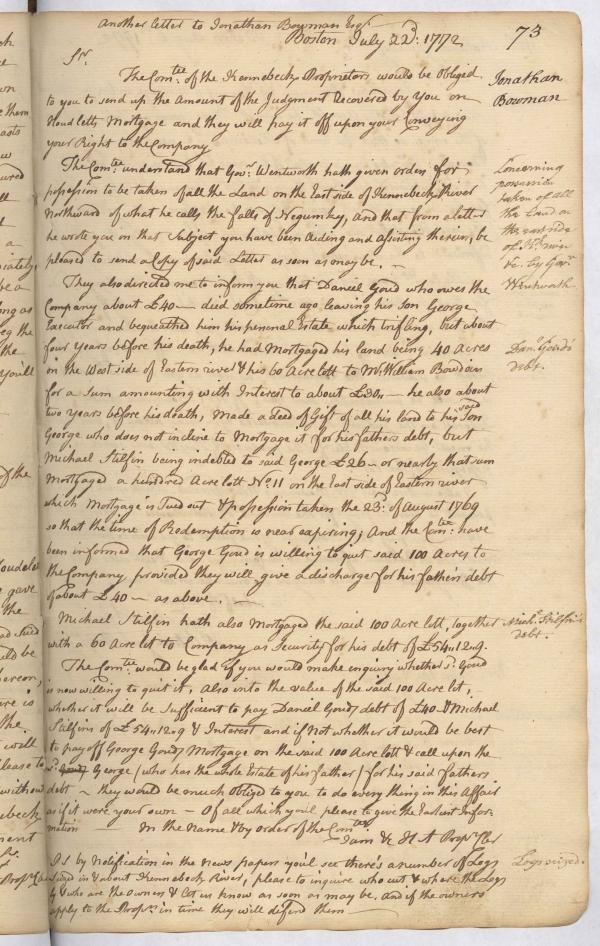 another letter to Jonathan Bowman Esqr.
Boston July 22d: 1772
73
Sr.
The Comtee. of the Kennebeck Proprietors would be Obliged
Jonathan
Bowman
to you to send up the Amount of the Judgment Recovered by You on
Mortgage and they will pay it off upon your Conveying
your Right to the Company
The Comtee: understand that Govr. Wentworth hath given orders for
possession to be taken of all the Land on the East side of Kennebeck River
Northward of what he calls the falls of Negumky, and that from a letter
he wrote you on that Subject you have been Aiding and Assisting therein, be
pleased to send a Copy of said Letter as soon as may be. —
Concerning
possession
taken of all
the Land on
the east side
of
by Govr.
Wentworth
They also directed me to inform you that Daniel Goud who owes the
Company about £40 — died sometime ago leaving his Son George
Executor and bequeathed him his personal Estate which trifling, but about
four Years before his death, he had Mortgaged his land being 40 Acres
on the West side of Eastern river & his 60 Acre lott to Mr. William Bowdoin
for a Sum amounting with Interest to about £30 — he also about
two years before his death, made a Deed of Gift of all his land to his said Son
George who does not incline to Mortgage it for his fathers debt, but
Michael Stilfin being indebted to said George £26 — or nearly that sum
Mortgaged a hundred Acre lott No. 11 on the East side of Eastern river
which Mortgage is Sued out & possession taken the 23d. of August 1769
so that the time of Redemption is near expiring; And the Comtee: have
been informed that George Goud is willing to quit said 100 Acres to
the Company provided they will give a discharge for his father's debt
of about £40 — as above. —
Danl. Goud's
debt.
Michael Stilfin hath also Mortgaged the said 100 Acre lott, together
with a 60 Acre lot to Company as Security for his debt of £54.12.9.
Michl. Stilfin's
debt.
The Comtee. would be glad if you would make enquiry whether sd. Goud
is now willing to quit it, Also into the value of the said 100 Acre lot,
whether it will be Sufficient to pay Daniel Gouds debt of £40 & Michael
Stilfins of £54.12.9 & Interest and if Not whether it would be best
to pay off George Gouds Mortgage on the said 100 Acre lott & call upon the
sd. George (who has the whole Estate of his father) for his said fathers
debt — they would be much oblig'd to you to do every thing in this Affair
as if it were your own — Of all which you'l please to give the Earliest Infor-
mation — In the Name & by order of the Comtee.
I am &c. Propts. Cler
PS by Notification in the News papers you'l see there's a number of Logs
seized in & about Kennebeck River, please to inquire who cut & where the Logs
& who are the owners & let us know as soon as may be, and if the owners
apply to the Proprs. in time they will defend them —
Logs seized.